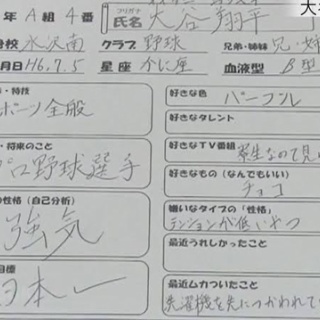 大
年 A 組 4 番
フリガナ
氏名 大谷翔平
学校 水沢南 クラブ 野球 兄弟・姉妹 兄・姉
月日 H6.7.5 星座 かに座 血液型 B型
・特技
ポーツ全般
・将来のこと
プロ野球選手
性格(自己分析)
強気
目標
日本一
好きな色
パープル
好きなタレント
好きなTV番組
寮生なので見
好きなもの(なんでもいい)
チョコ
嫌いなタイプの「性格」
テンションが低いやつ
最近うれしかったこと
最近ムカついたこと
洗濯機を先につかわれて